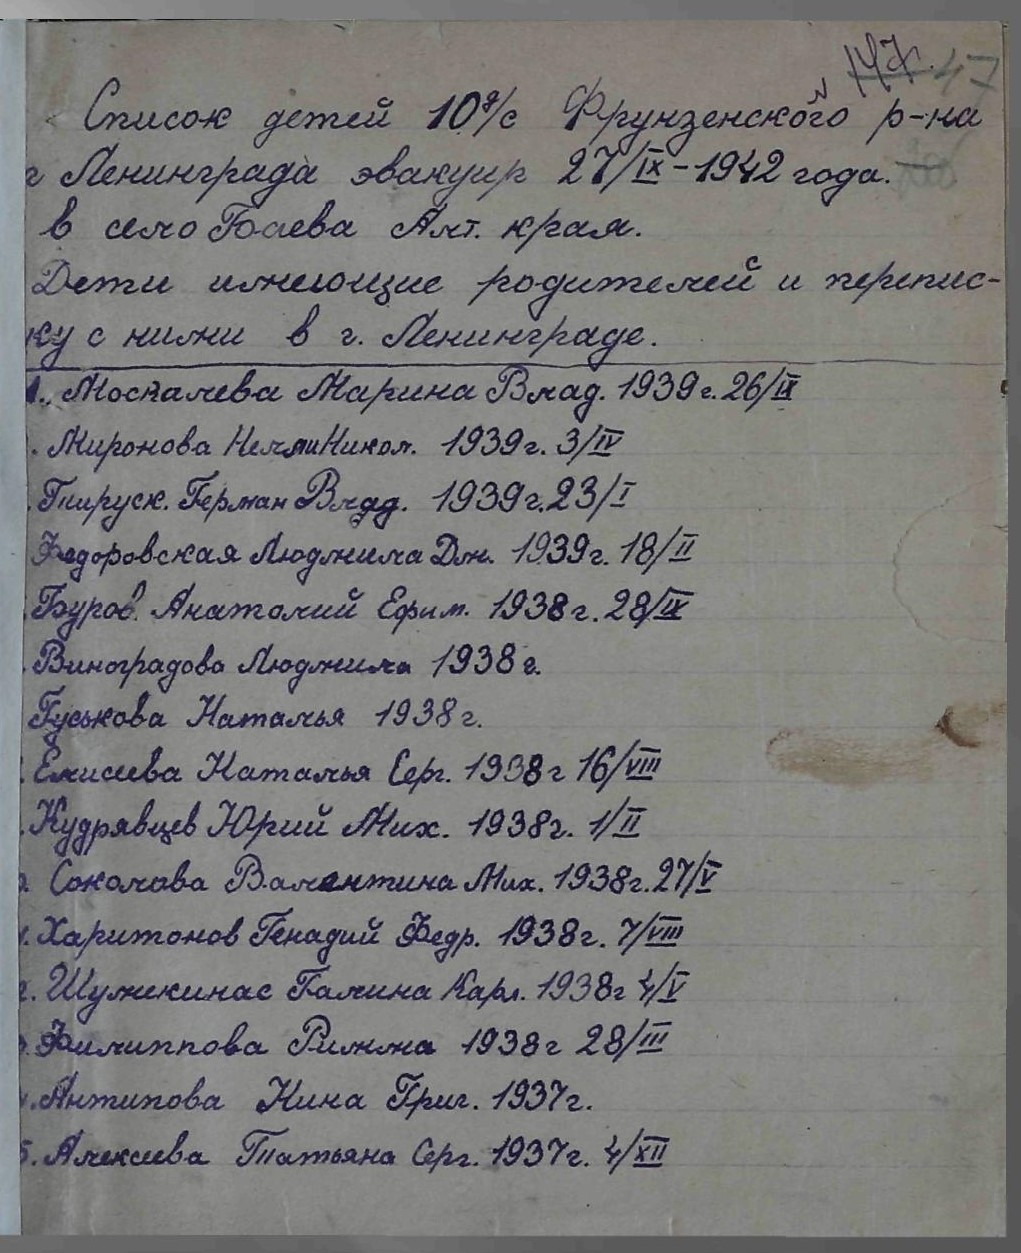 147. 47
Список детей 10 д/с Фрунзенского р-на
г Ленинграда эвакуир 27/IX-1942 года.
в село Баева Алт. края.
Дети имеющие родителей и перепис-
ку с ними в г. Ленинграде.
1. Москалева Марина Влад. 1939г. 26/IX
. Миронова Нелли Никол. 1939г. 3/IV
Пируск. Герман Влад. 1939г. 23/I
Федоровская Людмила Дм. 1939г. 18/II
Буров. Анатолий Ефим. 1938г. 28/IX
Виноградова Людмила 1938г.
Гуськова Наталья 1938г.
Елисеева Наталья Серг. 1938г 16/VIII
Кудрявцев Юрий Мих. 1938г. 1/II
. Соколава Валентина Мих. 1938г. 27/V
. Харитонов Генадий Федр. 1938г. 7/VIII
. Шумикинас Галина Карл. 1938г 4/V
. Филиппова Римма 1938г 28/III
. Антипова Нина Григ. 1937г.
5. Алексеева Татьяна Серг. 1937г. 4/XII